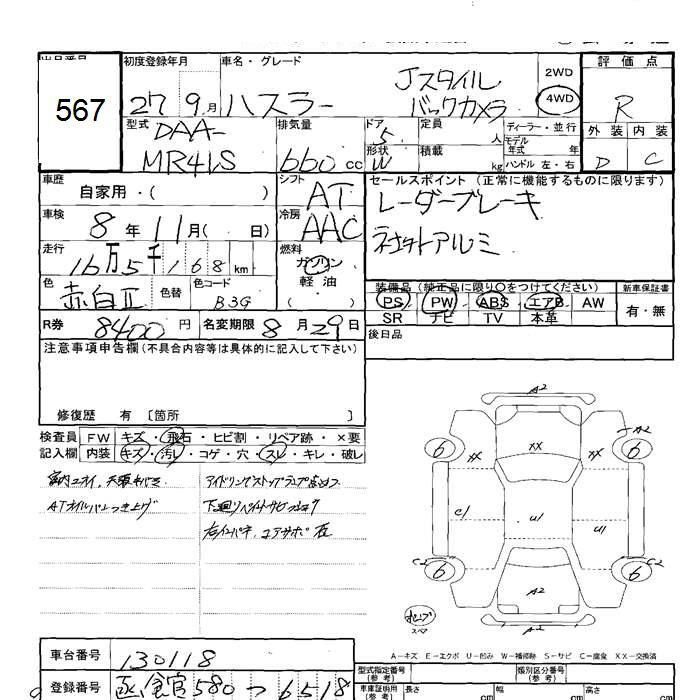 出品番号
567
初度登録年月
27 9月
車名・グレード
ハスラー
Jスタイル
バックカメラ
2WD
4WD
評価点
R
外装 内装
D C
型式
DAA-
MR41S
排気量
660 cc
ドア
5
形状
W
定員
人
積載
kg
ディーラー・並行
モデル
年式 年
ハンドル 左・右
車歴
自家用・( )
シフト
AT
セールスポイント(正常に機能するものに限ります)
レーダーブレーキ
社外アルミ
車検
8年11月( 日)
冷房
AAC
走行
16万5千168km
燃料
ガソリン
軽油
( )
色
赤白Ⅱ
色替
色コード
B3G
装備品(純正品に限り○をつけてください)
PS PW ABS エアB AW
SR ナビ TV 本革
新車保証書
有・無
R券 8400円
名変期限 8月29日
後日品
注意事項申告欄(不具合内容等は具体的に記入して下さい)
修復歴 有 〔箇所 〕
検査員
記入欄
FW キズ・飛石・ヒビ割・リペア跡・×要
内装 キズ・汚レ・コゲ・穴・スレ・キレ・破レ
ATオイルパンつき上げ
アイドリングストップランプ点メツ
A2
XX
XX
XX
A2
6
6
C1
U1
U1
C2
C2
6
6
A2
A2
スペア
A－キズ E－エクボ U－凹み W－補修跡 S－サビ C－腐食 XX－交換済
車台番号
130118
登録番号
函館 580 つ 6518
型式指定番号
(参考)
類別区分番号
(参考)
車庫証明用
(参考)
長さ
cm
幅
cm
高さ
cm